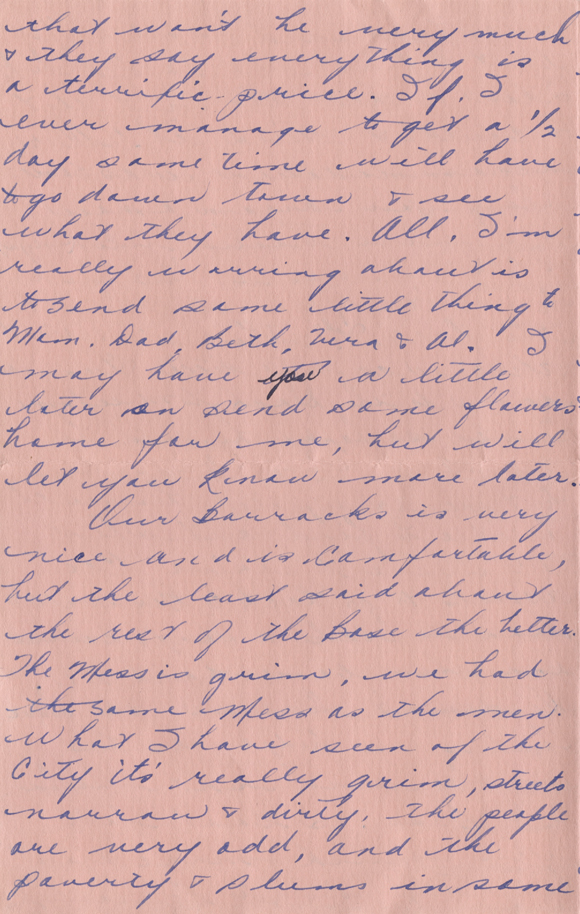 that won't be very much
& they say everything is
a terrific price. If I
ever manage to get a 1/2
day some time will have
to go down town & see
what they have. All I'm
really worring about is
to send some little thing to
Mom. Dad, Beth, Vera & Al. I
may have you a little
later on send some flowers
home for me, but will
let you know more later.
Our Barracks is very
nice and is comfortable,
but the least said about
the rest of the Base the better.
The Mess is grim, we had
the same Mess as the men.
What I have seen of the
City it's really grim, streets
narrow & dirty, the people
are very odd, and the
poverty & slums in some